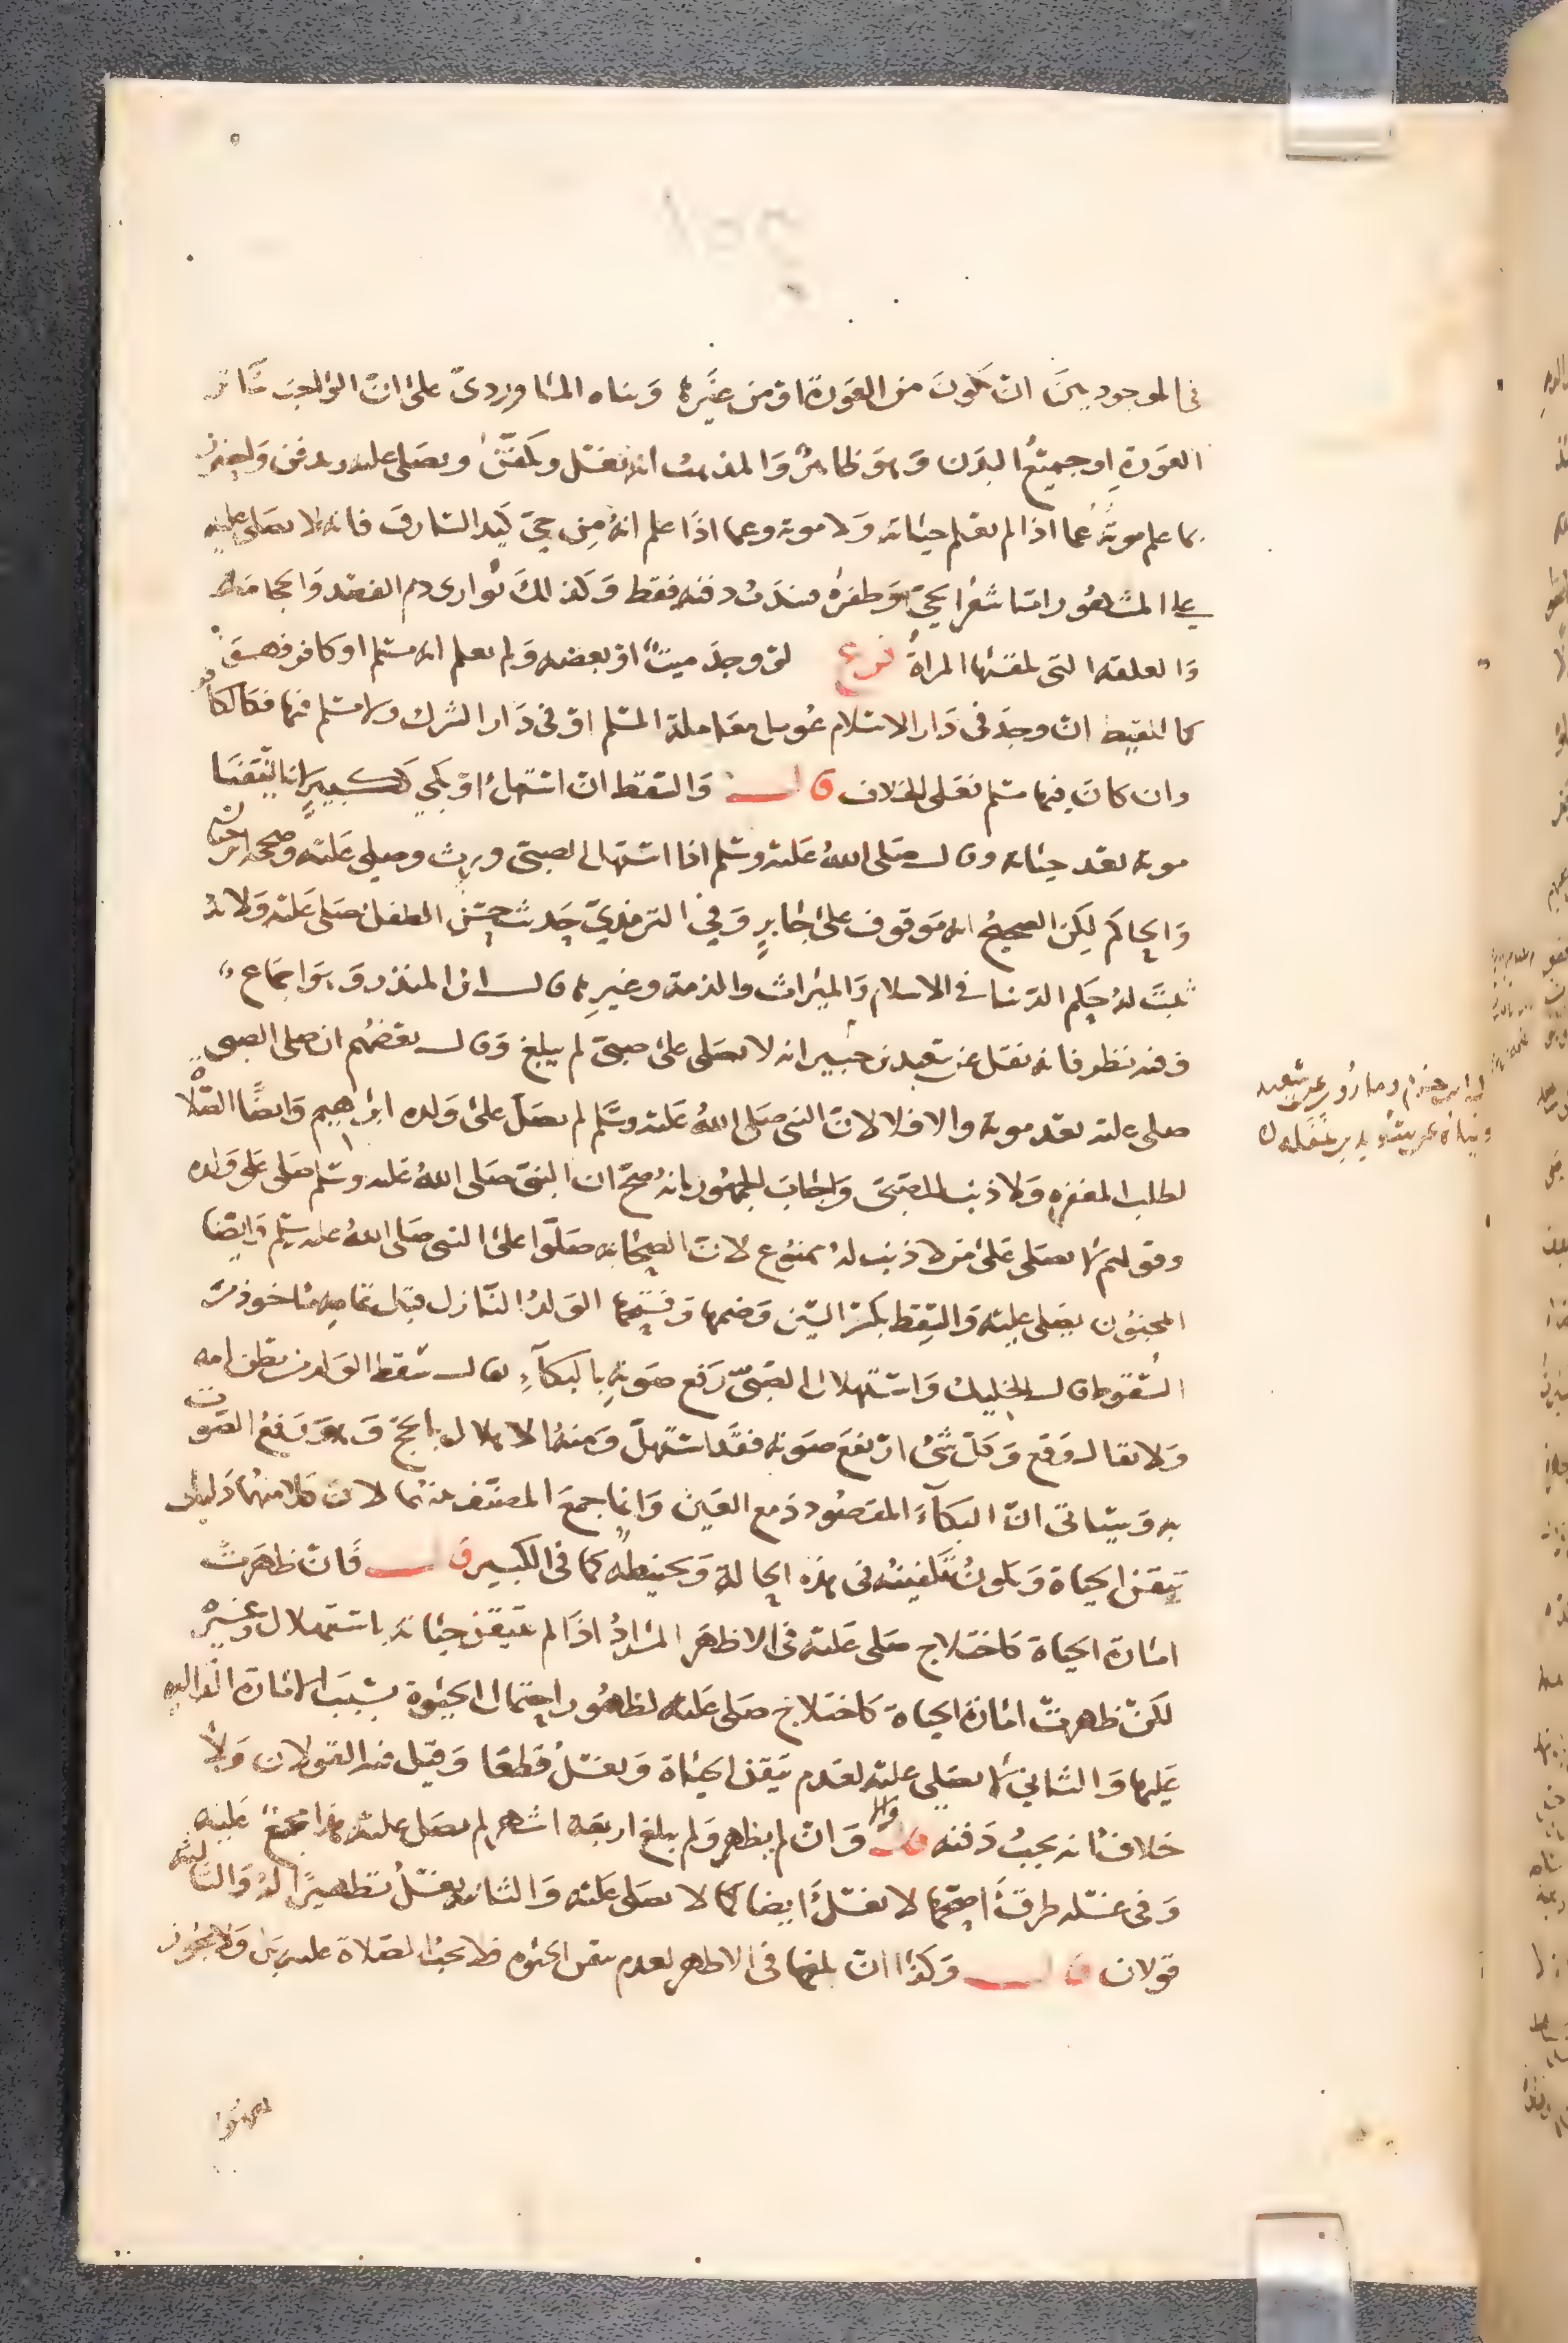 في الموجود بين ان تكون من العورة او من غيرها وبناه الماوردي على ان الواجب ساتر
العورة او جميع البدن وهو ظاهر والمذهب انه يغسل ويكفن ويصلى عليه ويدفن واحترز
بما علم موته عما اذا لم يعلم حياته ولا موته وعما اذا علم انه من حي كيد السارق فانه لا يصلى عليه
على المشهور اما شعر الحي وظفره فيندب دفنه فقط وكذلك توارى دم الفصد والحجامة
والعلقة التي تلقيها المراة فرع لو وجد ميت او بعضه ولم يعلم انه مسلم او كافر فهو
كاللقيط ان وجد في دار الاسلام عومل معاملة المسلم او في دار الشرك ولا مسلم فيها فكالكافر
وان كان فيها مسلم فعلى الخلاف قال والسقط ان استهل او بكى ككبير لنا تيقنا
موته بعد حياته وقال صلى الله عليه وسلم اذا استهل الصبي ورث وصلي عليه وصححه ابن حبان
والحاكم لكن الصحيح انه موقوف على جابر وفي الترمذي حديث حسن الطفل يصلى عليه ولانه
ثبت له حكم الدنيا في الاسلام والميراث والذمة وغيرها قال ابن المنذر وهو اجماع
وفيه نظر فانه نقل عن سعيد بن جبير انه لا يصلى على صبي لم يبلغ وقال بعضهم ان صلى الصبي
صلي عليه بعد موته والا فلا لان النبي صلى الله عليه وسلم لم يصل على ولده ابراهيم وايضا الصلاة
لطلب المغفرة ولا ذنب للصبي واجاب الجمهور بانه صح ان النبي صلى الله عليه وسلم صلى على ولده
وقولهم لا يصلى على من لا ذنب له ممنوع لان الصحابة صلوا على النبي صلى الله عليه وسلم وايضا
المجنون يصلى عليه والسقط بكسر السين وضمها وفتحها الولد النازل قبل تمامه ماخوذ من
السقوط قال الخليل واستهلال الصبي رفع صوته بالبكاء يقال سقط الولد من بطن امه
ولا يقال وقع وكل شيء ارتفع صوته فقد استهل ومنه الاهلال بالحج وهو رفع الصوت
به وسياتي ان البكاء المقصود دمع العين وانما جمع المصنف بينهما لان كلا منهما دليل
تيقن الحياة ويكون تكفينه في هذه الحالة وتحنيطه كما في الكبير قال فان ظهرت
امارة الحياة كاختلاج صلي عليه في الاظهر المراد اذا لم تتيقن حياته باستهلال وغيره
لكن ظهرت امارة الحياة كاختلاج صلي عليه لظهور احتمال الحيوة بسبب الامارة الدالة
عليها والثاني لا يصلى عليه لعدم تيقن الحياة ويغسل قطعا وقيل فيه القولان ولا
خلاف انه يجب دفنه قال وان لم يظهر ولم يبلغ اربعة اشهر لم يصل عليه هذا مجمع عليه
وفي غسله طرق اصحها لا يغسل ايضا كما لا يصلى عليه والثانية يغسل تطهيرا له والثالثة
قولان قال وكذا ان بلغها في الاظهر لعدم تيقن الحيوة فلا تجب الصلاة عليه بل ولا يجوز
ابن حزم وما روي عن سعيد
وبناه عن سويد بن غفلة